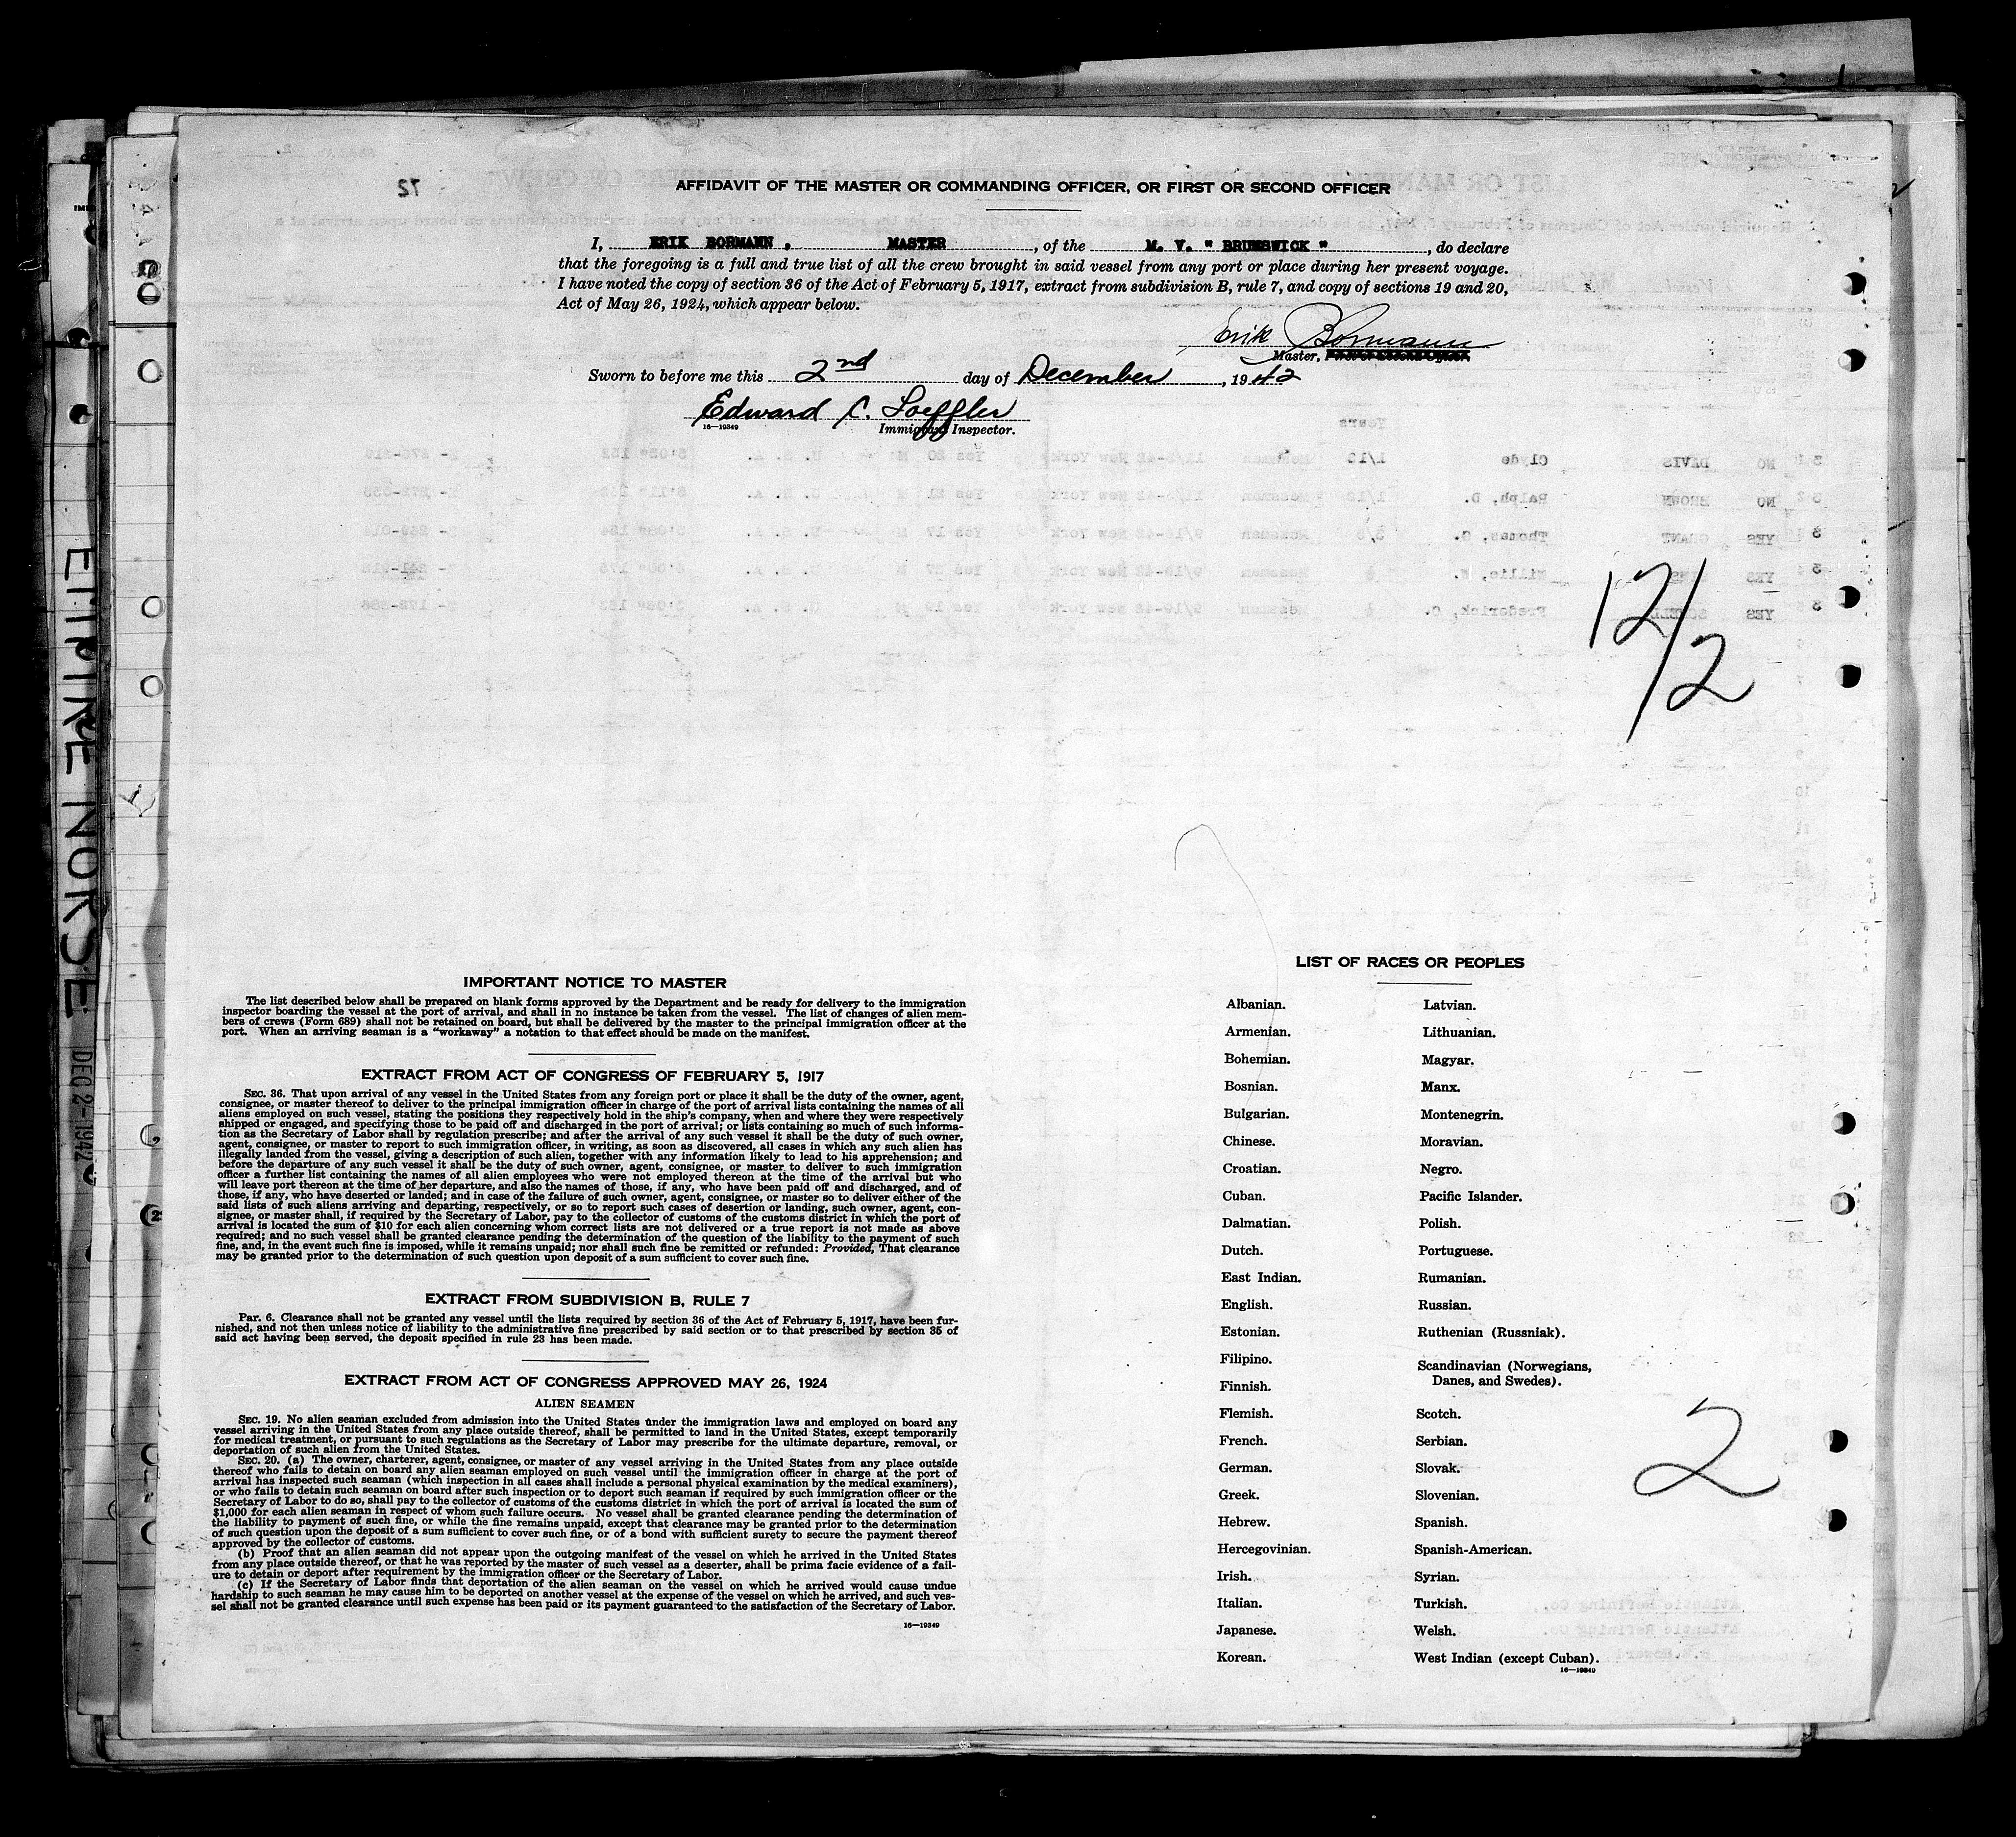 AFFIDAVIT OF THE MASTER OR COMMANDING OFFICER, OR FIRST OR SECOND OFFICER
I, ERIK BORMANN, MASTER, of the M. V. " BRUNSWICK ", do declare
that the foregoing is a full and true list of all the crew brought in said vessel from any port or place during her present voyage.
I have noted the copy of section 36 of the Act of February 5, 1917, extract from subdivision B, rule 7, and copy of sections 19 and 20,
Act of May 26, 1924, which appear below.
Erik Bormann
Master,
Sworn to before me this 2nd day of December, 1942
Edward C. Loeffler
16—19349 Immigrant Inspector.
12/2
IMPORTANT NOTICE TO MASTER
The list described below shall be prepared on blank forms approved by the Department and be ready for delivery to the immigration
inspector boarding the vessel at the port of arrival, and shall in no instance be taken from the vessel. The list of changes of alien mem-
bers of crews (Form 689) shall not be retained on board, but shall be delivered by the master to the principal immigration officer at the
port. When an arriving seaman is a "workaway" a notation to that effect should be made on the manifest.
EXTRACT FROM ACT OF CONGRESS OF FEBRUARY 5, 1917
SEC. 36. That upon arrival of any vessel in the United States from any foreign port or place it shall be the duty of the owner, agent,
consignee, or master thereof to deliver to the principal immigration officer in charge of the port of arrival lists containing the names of all
aliens employed on such vessel, stating the positions they respectively hold in the ship's company, when and where they were respectively
shipped or engaged, and specifying those to be paid off and discharged in the port of arrival; or lists containing so much of such informa-
tion as the Secretary of Labor shall by regulation prescribe; and after the arrival of any such vessel it shall be the duty of such owner,
agent, consignee, or master to report to such immigration officer, in writing, as soon as discovered, all cases in which any such alien has
illegally landed from the vessel, giving a description of such alien, together with any information likely to lead to his apprehension; and
before the departure of any such vessel it shall be the duty of such owner, agent, consignee, or master to deliver to such immigration
officer a further list containing the names of all alien employees who were not employed thereon at the time of the arrival but who
will leave port thereon at the time of her departure, and also the names of those, if any, who have been paid off and discharged, and of
those, if any, who have deserted or landed; and in case of the failure of such owner, agent, consignee, or master so to deliver either of the
said lists of such aliens arriving and departing, respectively, or so to report such cases of desertion or landing, such owner, agent, con-
signee, or master shall, if required by the Secretary of Labor, pay to the collector of customs of the customs district in which the port of
arrival is located the sum of $10 for each alien concerning whom correct lists are not delivered or a true report is not made as above
required; and no such vessel shall be granted clearance pending the determination of the question of the liability to the payment of such
fine, and, in the event such fine is imposed, while it remains unpaid; nor shall such fine be remitted or refunded: Provided, That clearance
may be granted prior to the determination of such question upon deposit of a sum sufficient to cover such fine.
EXTRACT FROM SUBDIVISION B, RULE 7
Par. 6. Clearance shall not be granted any vessel until the lists required by section 36 of the Act of February 5, 1917, have been fur-
nished, and not then unless notice of liability to the administrative fine prescribed by said section or to that prescribed by section 35 of
said act having been served, the deposit specified in rule 23 has been made.
EXTRACT FROM ACT OF CONGRESS APPROVED MAY 26, 1924
ALIEN SEAMEN
SEC. 19. No alien seaman excluded from admission into the United States under the immigration laws and employed on board any
vessel arriving in the United States from any place outside thereof, shall be permitted to land in the United States, except temporarily
for medical treatment, or pursuant to such regulations as the Secretary of Labor may prescribe for the ultimate departure, removal, or
deportation of such alien from the United States.
SEC. 20. (a) The owner, charterer, agent, consignee, or master of any vessel arriving in the United States from any place outside
thereof who fails to detain on board any alien seaman employed on such vessel until the immigration officer in charge at the port of
arrival has inspected such seaman (which inspection in all cases shall include a personal physical examination by the medical examiners),
or who fails to detain such seaman on board after such inspection or to deport such seaman if required by such immigration officer or the
Secretary of Labor to do so, shall pay to the collector of customs of the customs district in which the port of arrival is located the sum of
$1,000 for each alien seaman in respect of whom such failure occurs. No vessel shall be granted clearance pending the determination of
the liability to payment of such fine, or while the fine remains unpaid, except that clearance may be granted prior to the determination
of such question upon the deposit of a sum sufficient to cover such fine, or of a bond with sufficient surety to secure the payment thereof
approved by the collector of customs.
(b) Proof that an alien seaman did not appear upon the outgoing manifest of the vessel on which he arrived in the United States
from any place outside thereof, or that he was reported by the master of such vessel as a deserter, shall be prima facie evidence of a fail-
ure to detain or deport after requirement by the immigration officer or the Secretary of Labor.
(c) If the Secretary of Labor finds that deportation of the alien seaman on the vessel on which he arrived would cause undue
hardship to such seaman he may cause him to be deported on another vessel at the expense of the vessel on which he arrived, and such ves-
sel shall not be granted clearance until such expense has been paid or its payment guaranteed to the satisfaction of the Secretary of Labor.
16—19349
LIST OF RACES OR PEOPLES
Albanian.
Armenian.
Bohemian.
Bosnian.
Bulgarian.
Chinese.
Croatian.
Cuban.
Dalmatian.
Dutch.
East Indian.
English.
Estonian.
Filipino.
Finnish.
Flemish.
French.
German.
Greek.
Hebrew.
Hercegovinian.
Irish.
Italian.
Japanese.
Korean.
Latvian.
Lithuanian.
Magyar.
Manx.
Montenegrin.
Moravian.
Negro.
Pacific Islander.
Polish.
Portuguese.
Rumanian.
Russian.
Ruthenian (Russniak).
Scandinavian (Norwegians,
Danes, and Swedes).
Scotch.
Serbian.
Slovak.
Slovenian.
Spanish.
Spanish-American.
Syrian.
Turkish.
Welsh.
West Indian (except Cuban).
16—19349
2
EMPIRE NORSE
DEC 2-1942